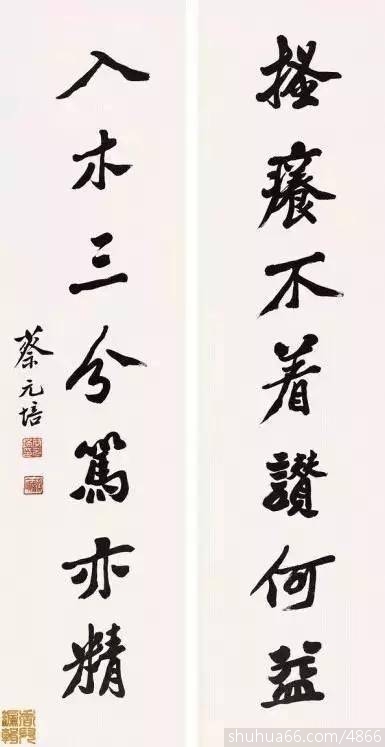 搔癢不着讚何益
入木三分駡亦精
蔡元培
shuhua66.com/4866